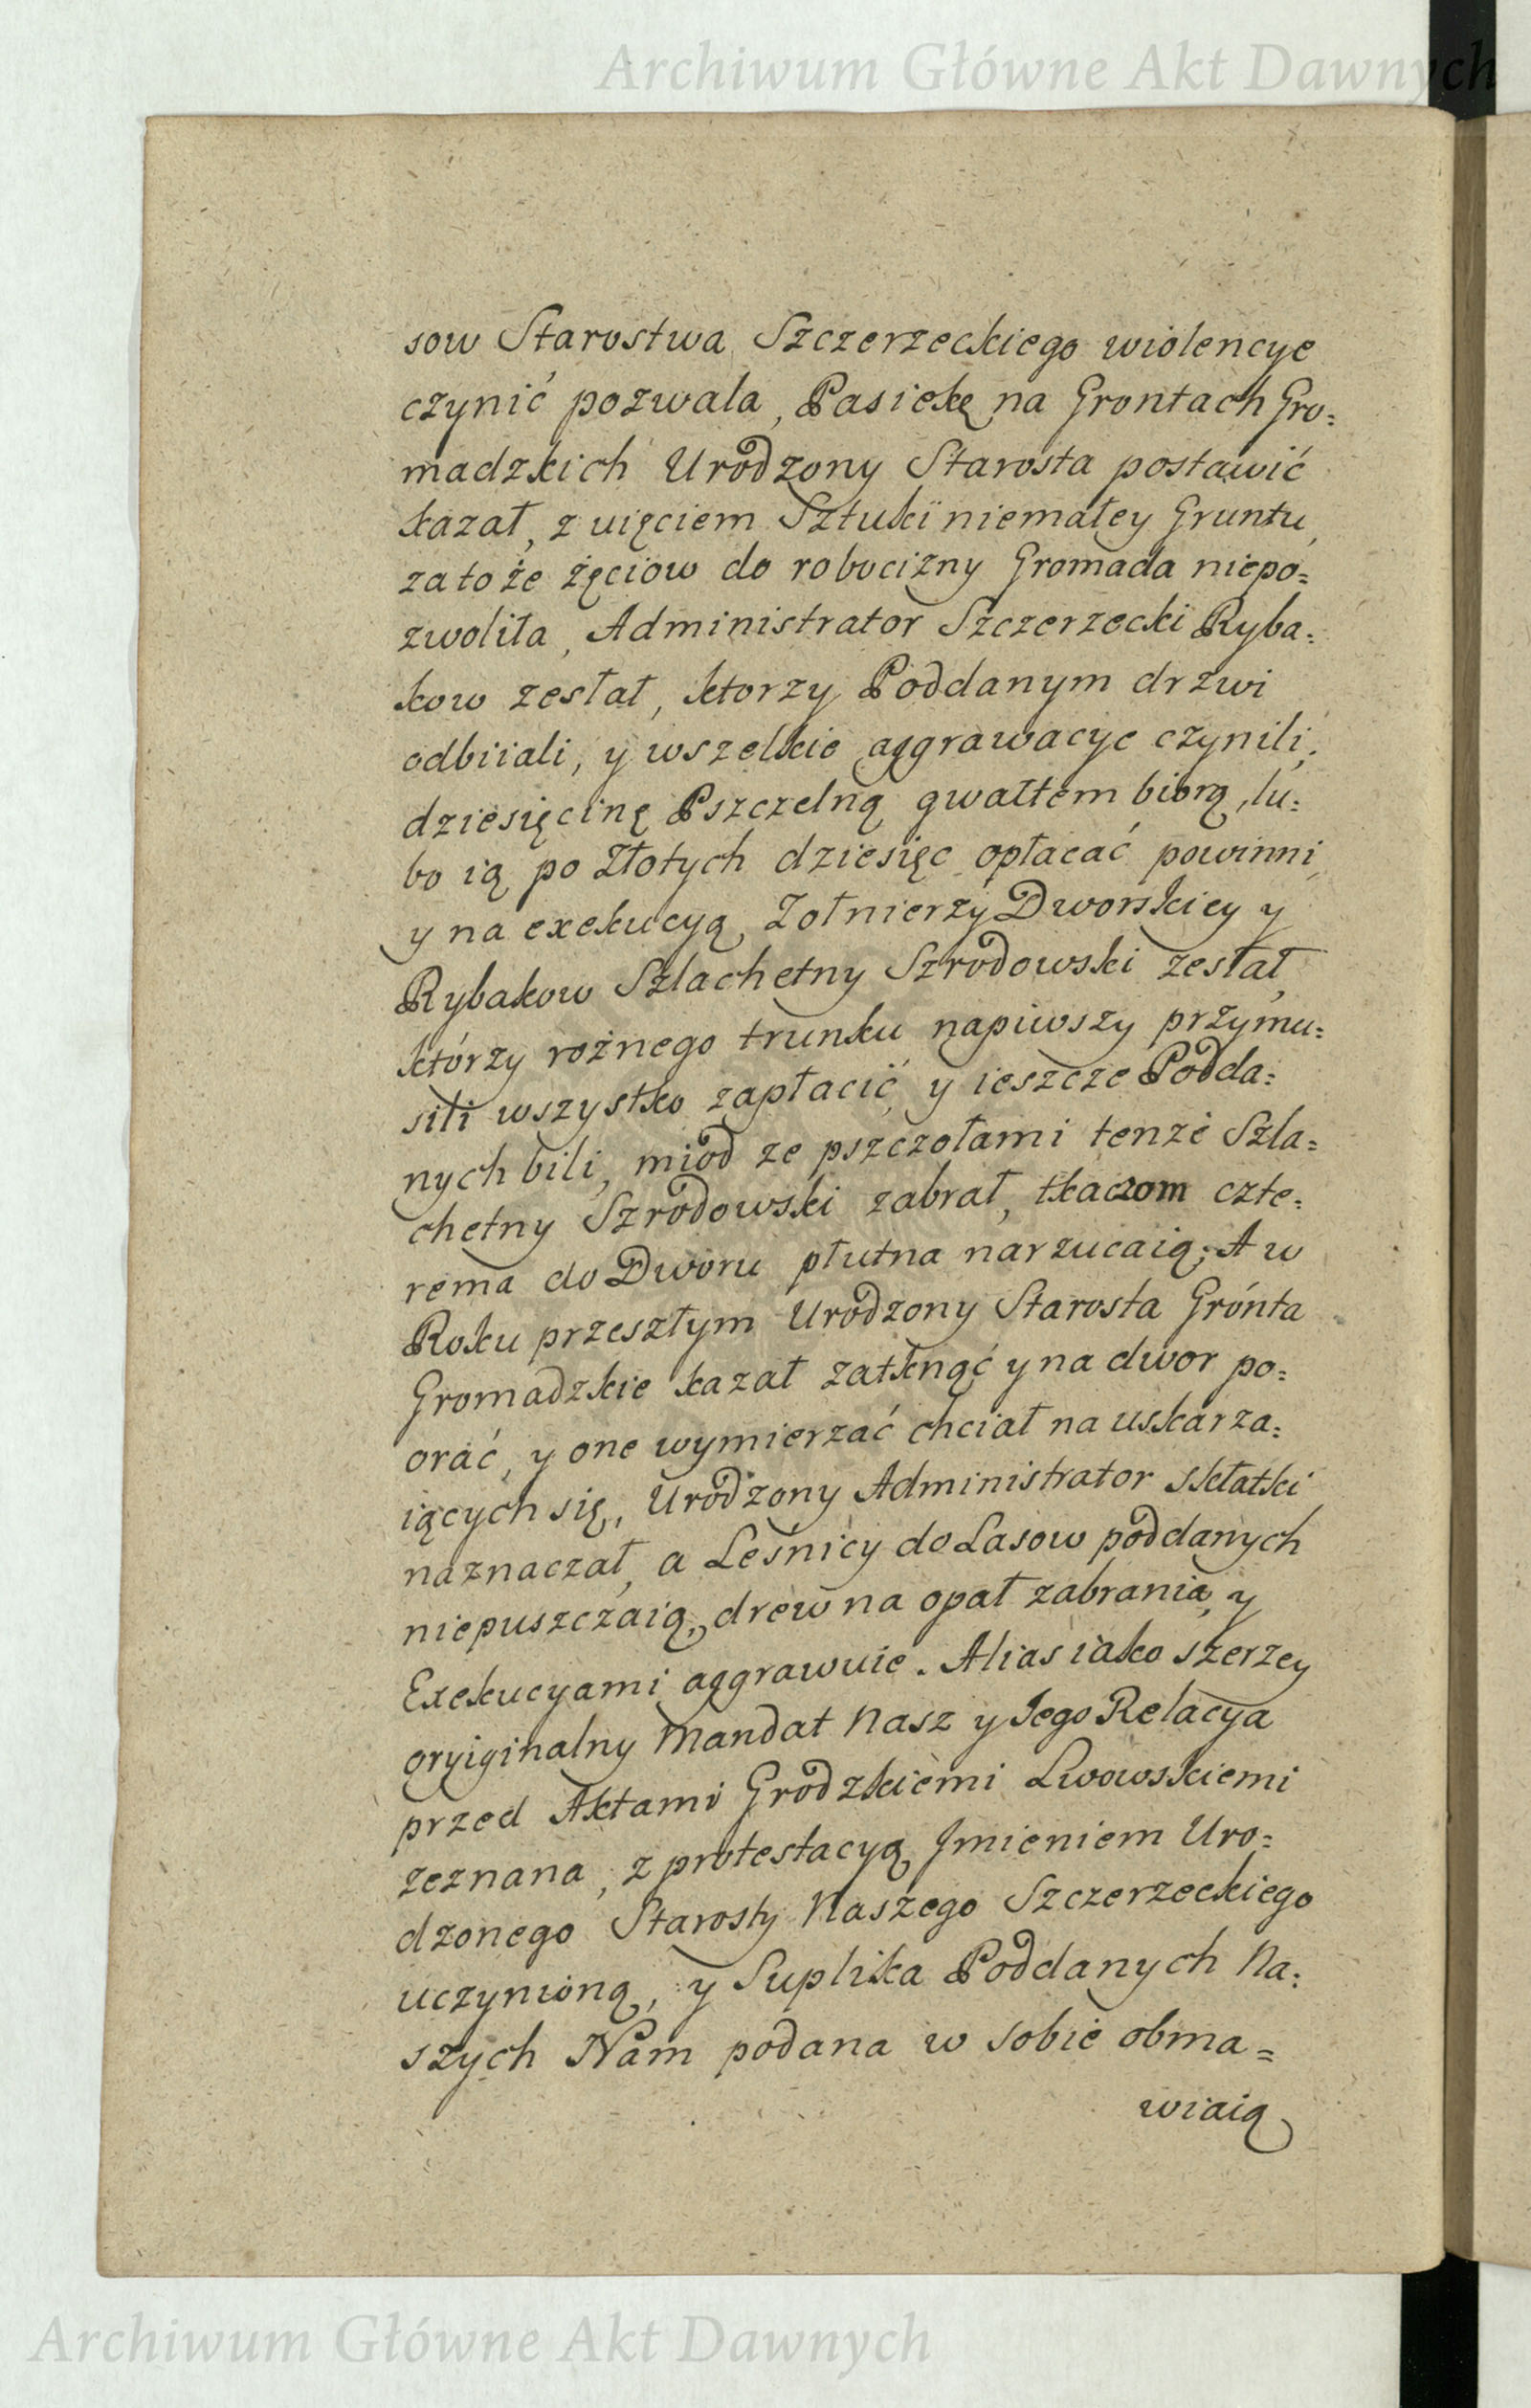 Archiwum Główne Akt Dawnych
sow Starostwa Szczerzeckiego wiolencye
czynić pozwala, Pasiekę na Grontach Gro=
madzkich Urodzony Starosta postawić
kazał, z uięciem Sztuki niemałey Gruntu,
za to że żęciow do robocizny Gromada niepo=
zwoliła, Administrator Szczerzecki Ryba=
kow zesłał, ktorzy Poddanym drzwi
odbiiali, y wszelkie aggrawacye czynili,
dziesięcinę Pszczelną gwałtem biorą, lu=
bo ią po Złotych dziesięc opłacać powinni,
y na exekucyą, Zołnierzy Dworskiey y
Rybakow Szlachetny Szrodowski zesłał,
którzy rożnego trunku napiwszy przymu=
sili wszystko zapłacić, y ieszcze Podda=
nych bili, miod ze pszczołami tenże Szla=
chetny Szrodowski zabrał, tkaczom czte=
rema do Dworu płutna narzucaią; A w
Roku przeszłym Urodzony Starosta Grónta
Gromadzkie kazał zatknąć y na dwor po=
orać, y one wymierzać chciał na uskarza=
iących się, Urodzony Administrator skłatki
naznaczał, a Leśnicy do Lasow poddanych
niepuszczaią, drew na opał zabrania, y
Exekucyami aggrawuie. Alias iako szerzey
oryiginalny Mandat Nasz y Jego Relacya
przed Aktami Grodzkiemi Lwowskiemi
zeznana, z protestacyą Jmieniem Uro=
dzonego Starosty Naszego Szczerzeckiego
uczynioną, y Suplika Poddanych Na=
szych Nam podana w sobie obma=
wiaią
Archiwum Główne Akt Dawnych